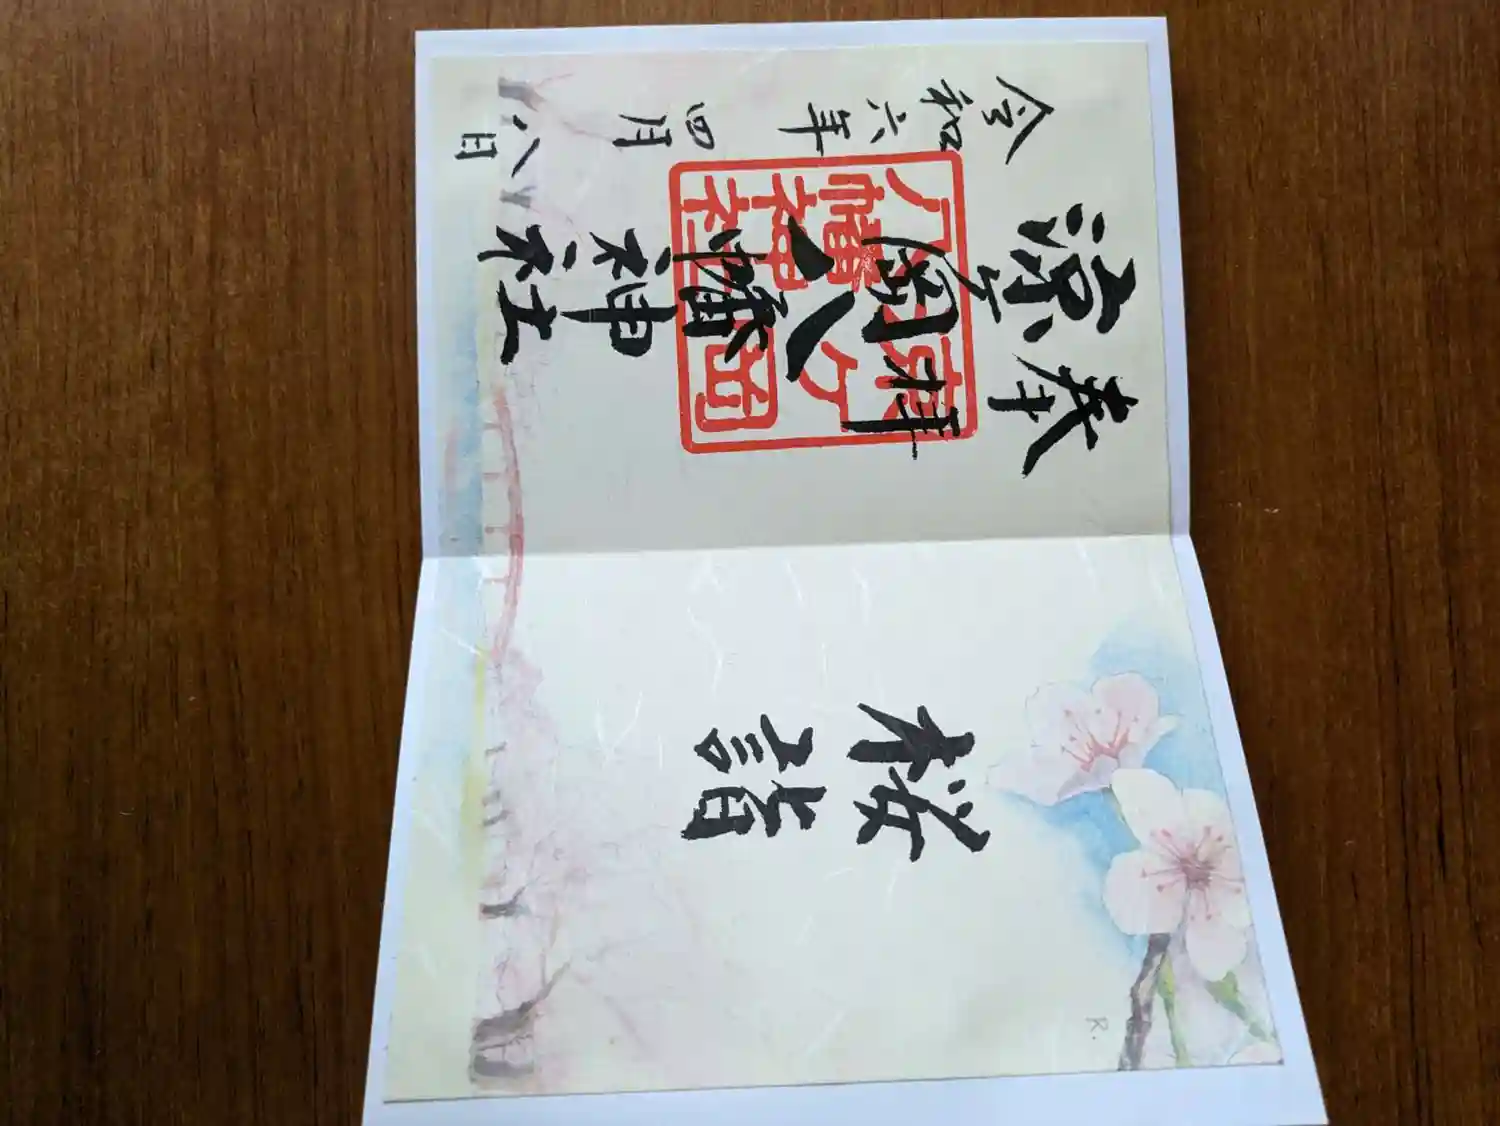 桜詣
奉拝
涼ヶ岡八幡神社
令和六年四月八日
涼ヶ岡
八幡神社
R.